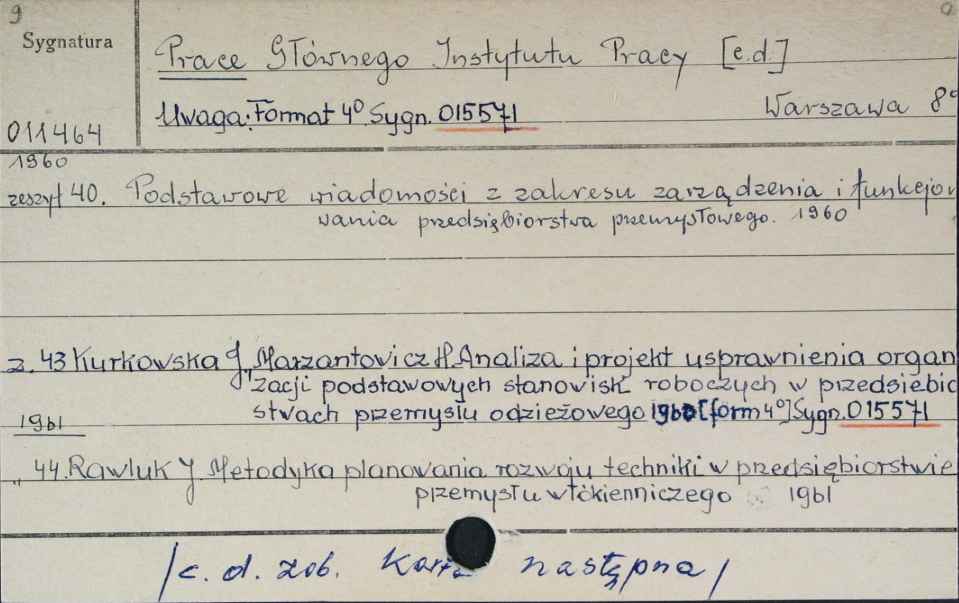 9
Sygnatura
Prace Głównego Instytutu Pracy [c.d.]
Uwaga: Format 4° Sygn. 015571 Warszawa 8°
011464
1960
zeszyt 40. Podstawowe wiadomości z zakresu zarządzenia i funkcjon
wania przedsiębiorstwa przemysłowego. 1960
z. 43 Kurkowska J., Marzantowicz H. Analiza i projekt usprawnienia organ
zacji podstawowych stanowisk roboczych w przedsiębio
stwach przemysłu odzieżowego 1960 [form 4°] Sygn. 015571
1961
" 44. Rawluk J. Metodyka planowania rozwoju techniki w przedsiębiorstwie
przemysłu włókienniczego 1961
/c. d. zob. karta następna/